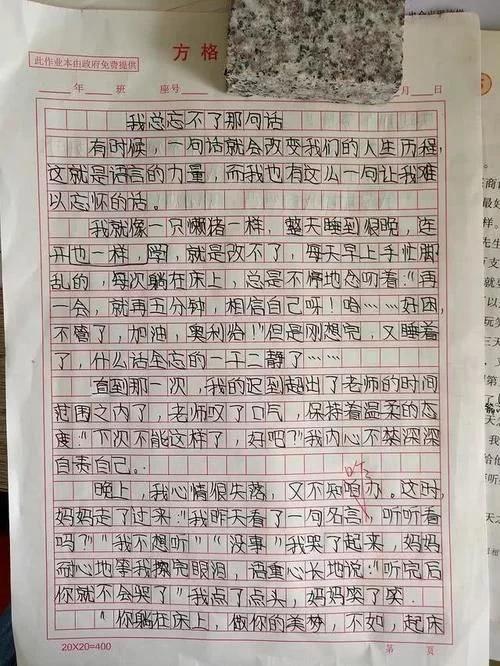 方格
此作业本由政府免费提供
年 班 座号 月 日
我总忘不了那句话
有时候，一句话就会改变我们的人生历程，
这就是语言的力量，而我也有这么一句让我难
以忘怀的话。
我就像一只懒猪一样，整天睡到很晚，连
开也一样，学，就是改不了，每天早上手忙脚
乱的，每次躺在床上，总是不停地念叨着："再
一会，就再五分钟，相信自己呀！哈……好困，
不管了，加油，奥利给！"但是刚想完，又睡着
了，什么话全忘的一干二静了……
直到那一次，我的迟到超出了老师的时间
范围之内了，老师叹了口气，保持着温柔的态
度："下次不能这样了，好吧？"我内心不禁深深
自责自己。
晚上，我心情很失落，又不知咋办。这时，
妈妈走了过来："我昨天看了一句名言，听听看
吗？""我不想听""没事"我哭了起来，妈妈
耐心地等我擦完眼泪，语重心长地说："听完后
你就不会哭了"我点了点头，妈妈笑了笑.
"你躺在床上，做你的美梦，不如，起床
20X20=400
第 页